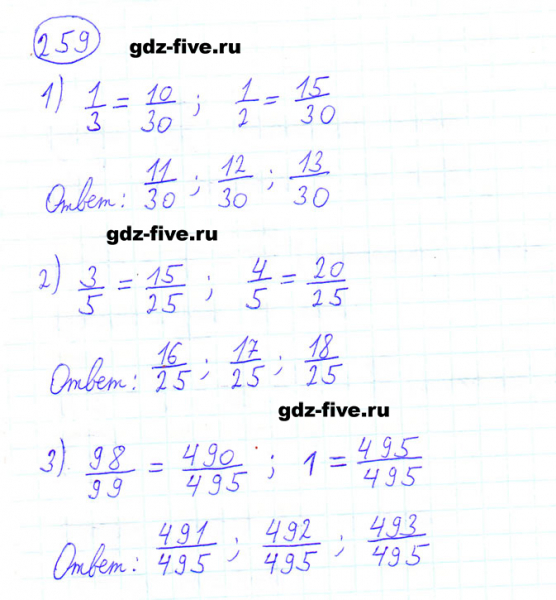 259 gdz-five.ru
1) 1/3 = 10/30 ; 1/2 = 15/30
Ответ: 11/30 ; 12/30 ; 13/30
gdz-five.ru
2) 3/5 = 15/25 ; 4/5 = 20/25
Ответ: 16/25 ; 17/25 ; 18/25
gdz-five.ru
3) 98/99 = 490/495 ; 1 = 495/495
Ответ: 491/495 ; 492/495 ; 493/495